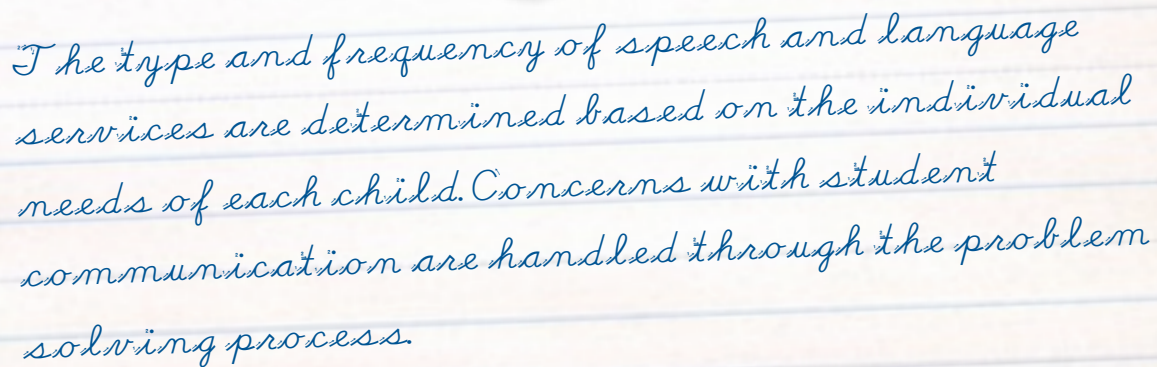 The type and frequency of speech and language
services are determined based on the individual
needs of each child. Concerns with student
communication are handled through the problem
solving process.